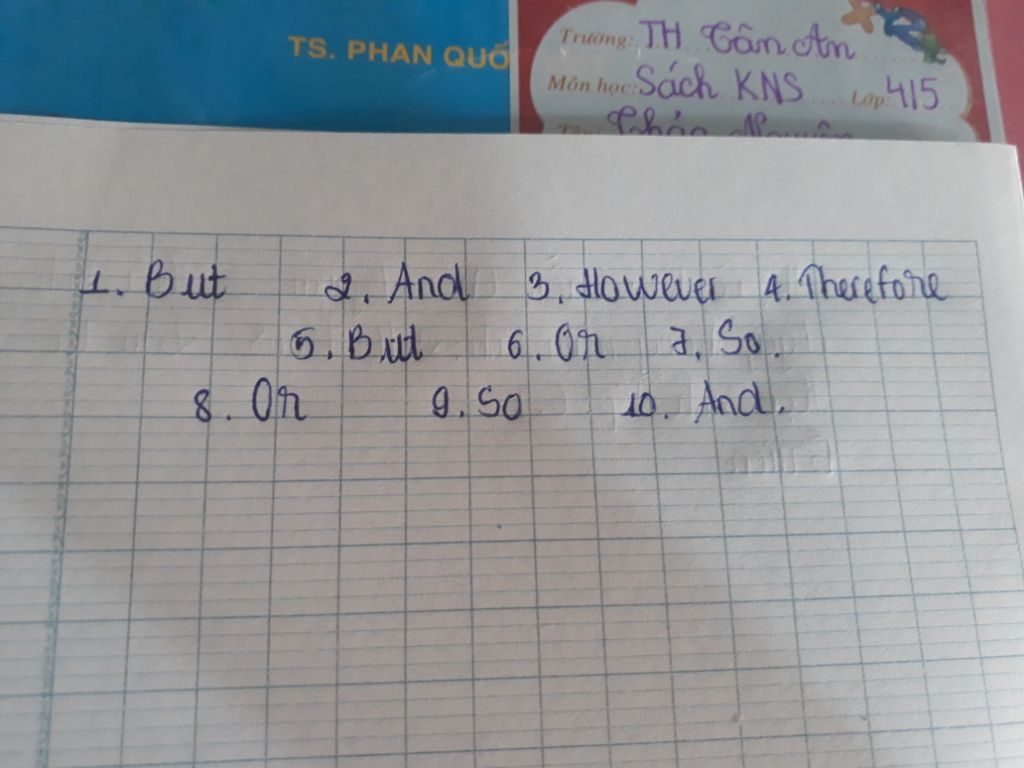 TS. PHAN QUỐ
Trường: TH Tân An
Môn học: Sách KNS Lớp: 4/5
1. But 2. And 3. However 4. Therefore
5. But 6. Or 7. So.
8. Or 9. So 10. And.